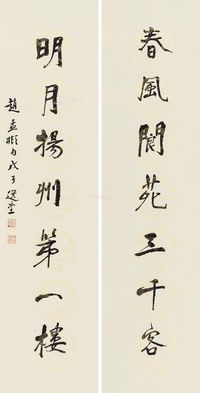 春風閬苑三千客
明月揚州第一樓
趙孟頫句戊子選堂